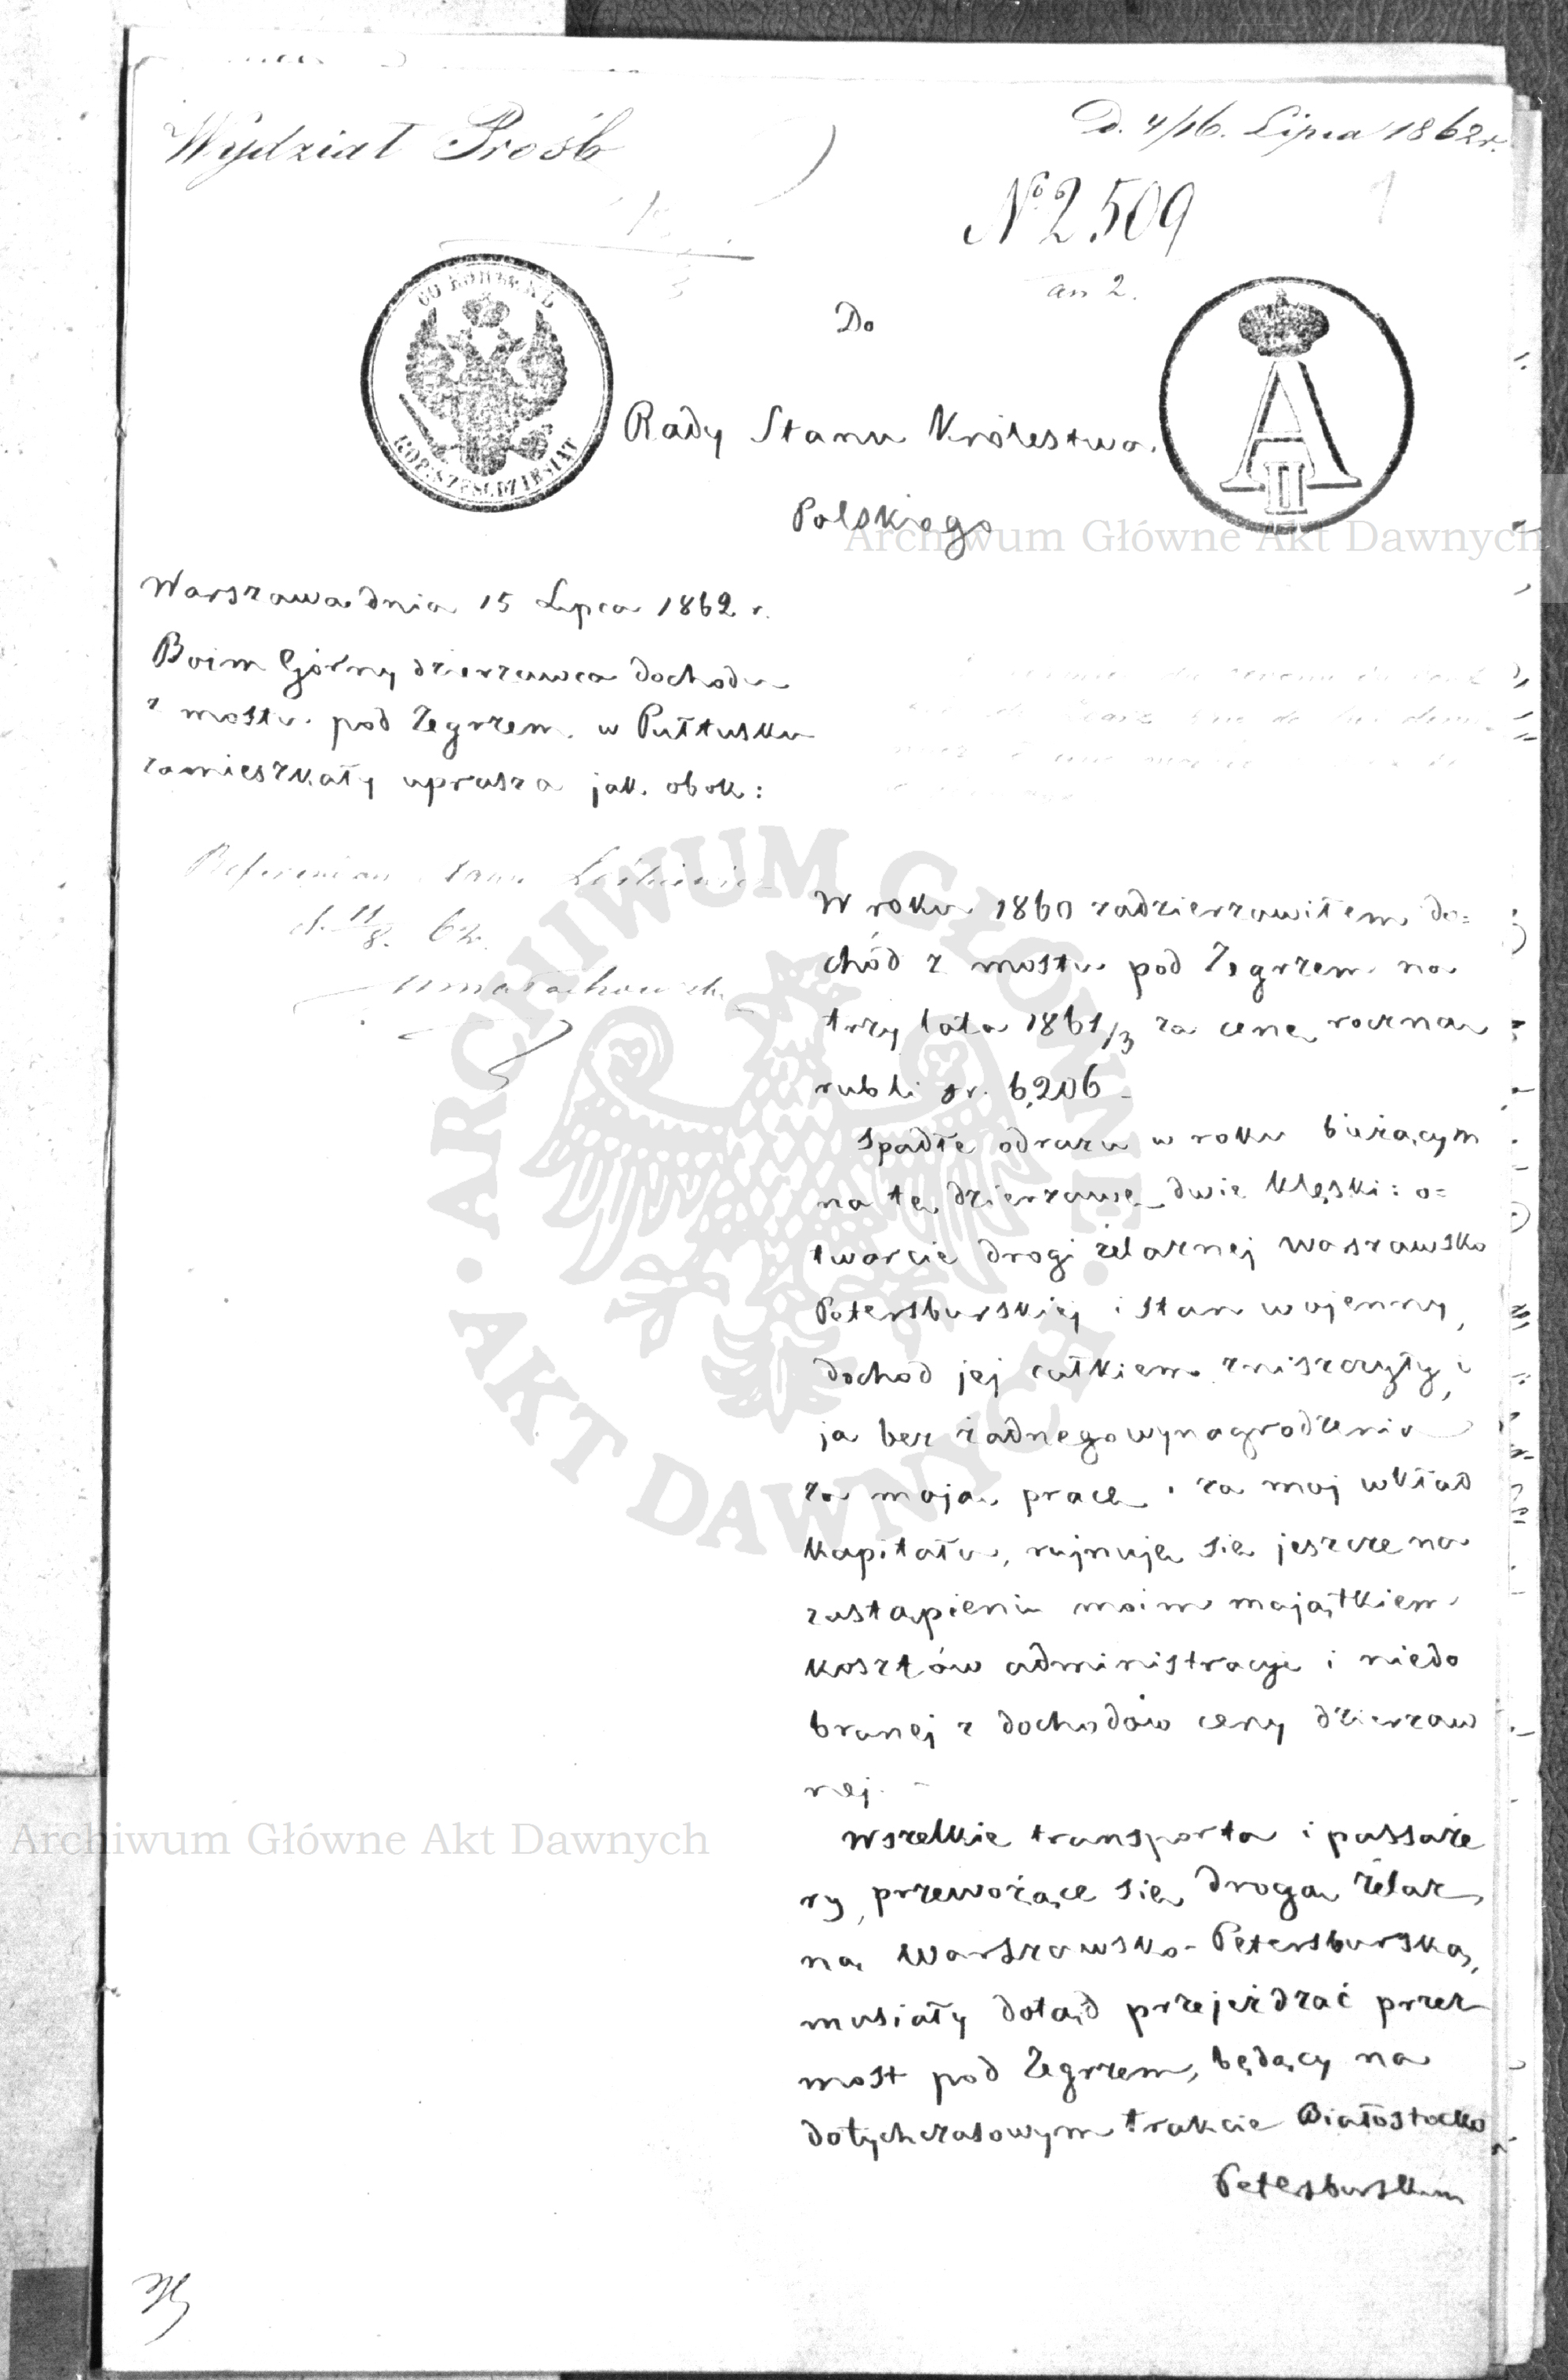 Wydział Prośb
D. 4/16. Lipca 1862 r.
№ 2509
an 2.
1
60 КОПѢЕКЪ
KOP. SZEŚĆDZIESIĄT
A II
Do
Rady Stanu Królestwa
Polskiego
Warszawa dnia 15 Lipca 1862 r.
Boim Górny dzierzawca dochodu
z mostu pod Zegrzem w Pułtusku
zamieszkały uprasza jak obok:
d. 11/8. 62.
W roku 1860 zadzierzawiłem do=
chód z mostu pod Zegrzem na
trzy lata 1861/3 za cenę roczną
rubli sr. 6,206 -
Spadłe odrazu w roku bieżącym
na tę dzierzawę dwie klęski: o=
twarcie drogi żelaznej Warszawsko
Petersburskiej i stan wojenny,
dochod jej całkiem zniszczyły, i
ja bez żadnego wynagrodzenia
za moją pracę i za moj wkład
kapitału, rujnuję się jeszcze na
zastąpieniu moim majątkiem
kosztów administracyi i niedo
branej z dochodów ceny dzierzaw
nej. -
Wszelkie transporta i passaże
ry, przewożące się drogą żelaz
ną Warszawsko-Petersburską,
musiały dotąd przejeżdzać przez
most pod Zegrzem, będący na
dotychczasowym trakcie Białostocko
Petersburskim
Archiwum Główne Akt Dawnych
ARCHIWUM GŁÓWNE
AKT DAWNYCH
Archiwum Główne Akt Dawnych